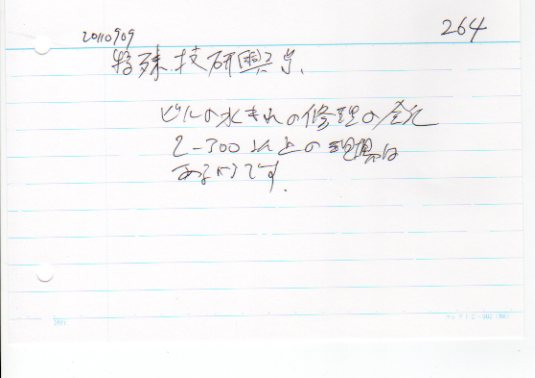 264
20110909
特殊技研興
ビルの水もれの修理の会社
2-300以上の現場は
あるはずです.